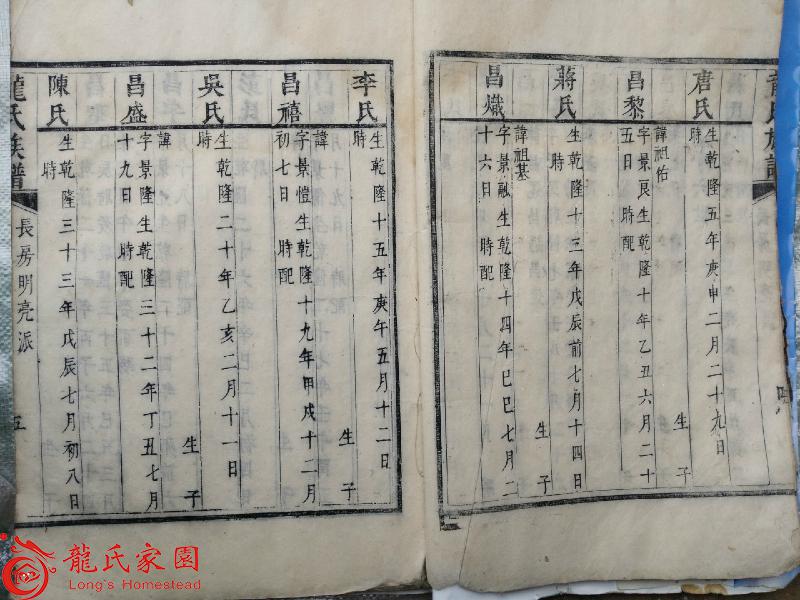 龍氏族譜
唐氏
生乾隆五年庚申二月二十九日
時
昌黎
諱祖佑
字景良生乾隆十年乙丑六月二十
五日 時配
蔣氏
生乾隆十三年戊辰前七月十四日
時 生子
昌熾
諱祖基
字景融生乾隆十四年巳巳七月二
十六日 時配
李氏
生乾隆十五年庚午五月十二日
時 生子
昌禧
諱
字景愷生乾隆十九年甲戌十二月
初七日 時配
吳氏
生乾隆二十年乙亥二月十一日
時 生子
昌盛
諱
字景隆生乾隆三十二年丁丑七月
十九日 時配
陳氏
生乾隆三十三年戊辰七月初八日
時
龍氏族譜
長房明亮派
五
龍氏家園
Long's Homestead